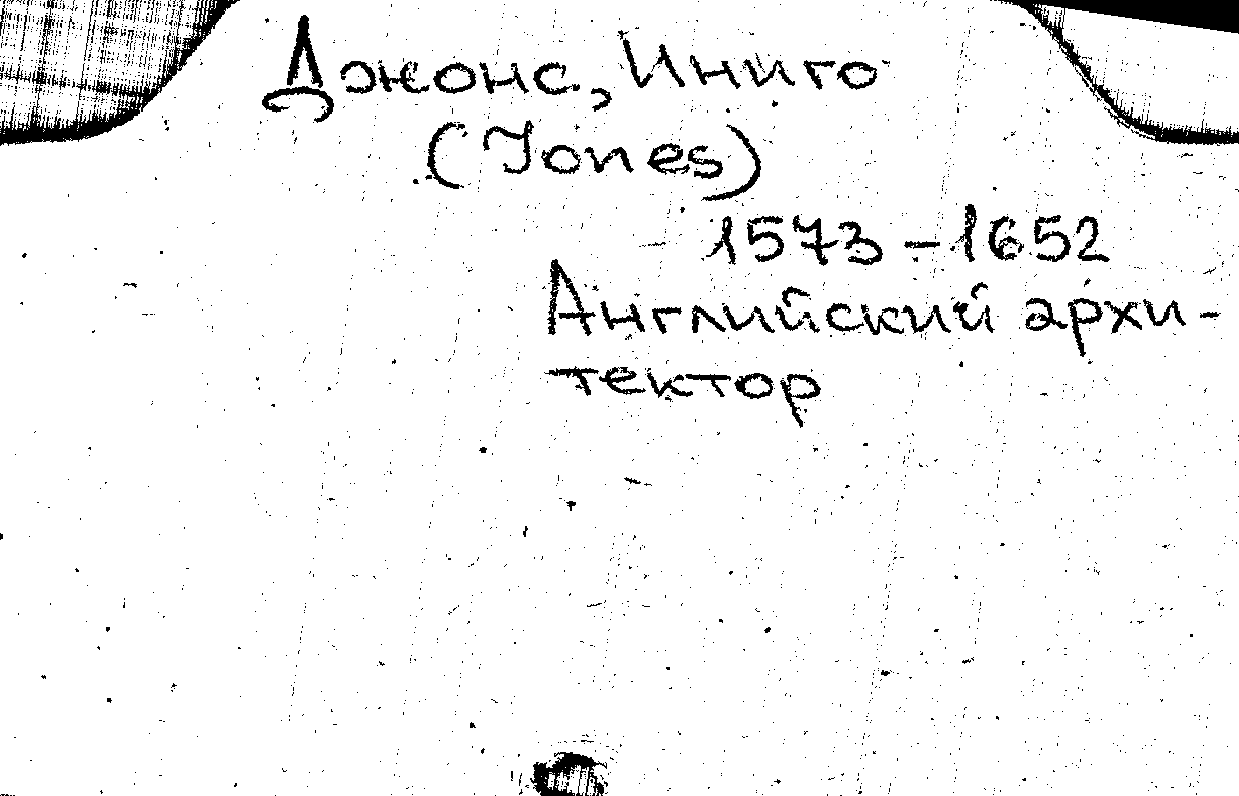 Джонс, Иниго
(Jones)
1573 – 1652
Английский архи-
тектор